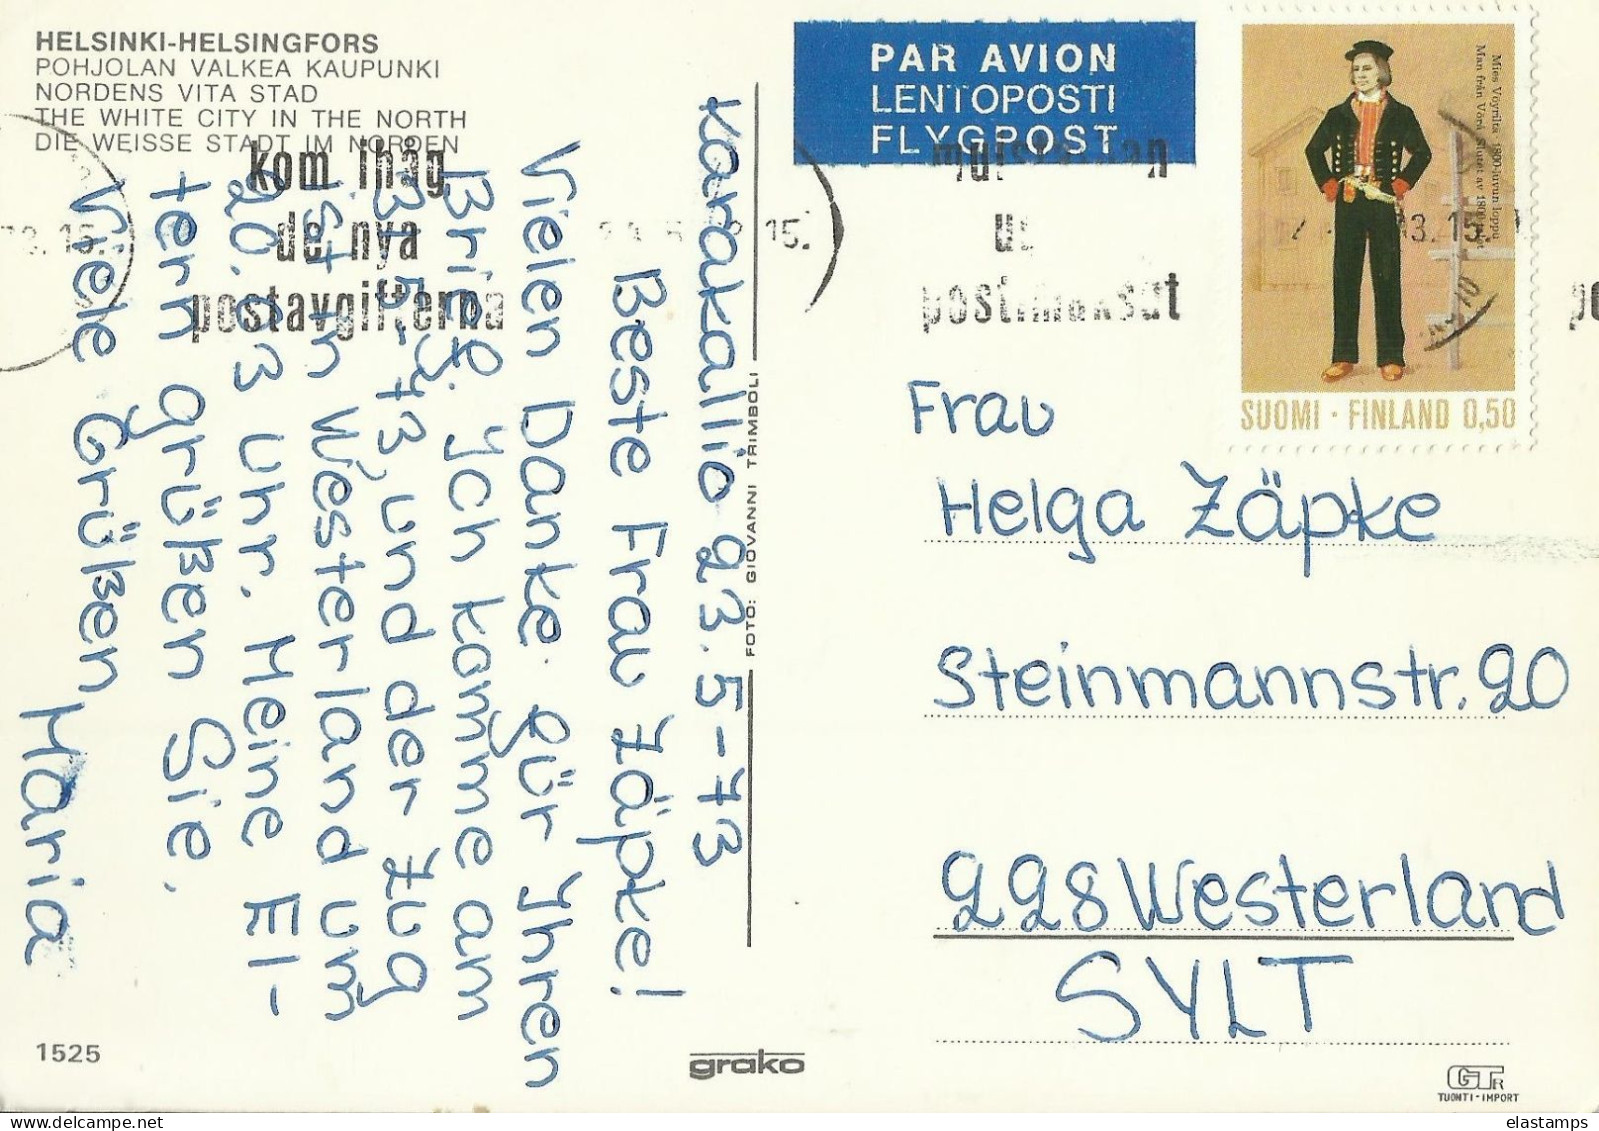 HELSINKI-HELSINGFORS
POHJOLAN VALKEA KAUPUNKI
NORDENS VITA STAD
THE WHITE CITY IN THE NORTH
DIE WEISSE STADT IM NORDEN
kom ihåg
de nya
postavgifterna
Karakallio 23.5-73
Beste Frau Zäpke!
Vielen Danke für Ihren
Brief. Ich komme am
31.5-73, und der Zug
ist in Westerland um
20.03 Uhr. Meine El-
tern grüßen Sie.
Viele Grüßen
Maria
FOTO: GIOVANNI TRIMBOLI
1525
grako
PAR AVION
LENTOPOSTI
FLYGPOST
postimaksut
Mies Vöyriltä 1800-luvun loppu
Man från Vörå Slutet av 1800-talet
SUOMI · FINLAND 0,50
Frau
Helga Zäpke
Steinmannstr. 20
228 Westerland
SYLT
GTR
TUONTI-IMPORT
elastamps